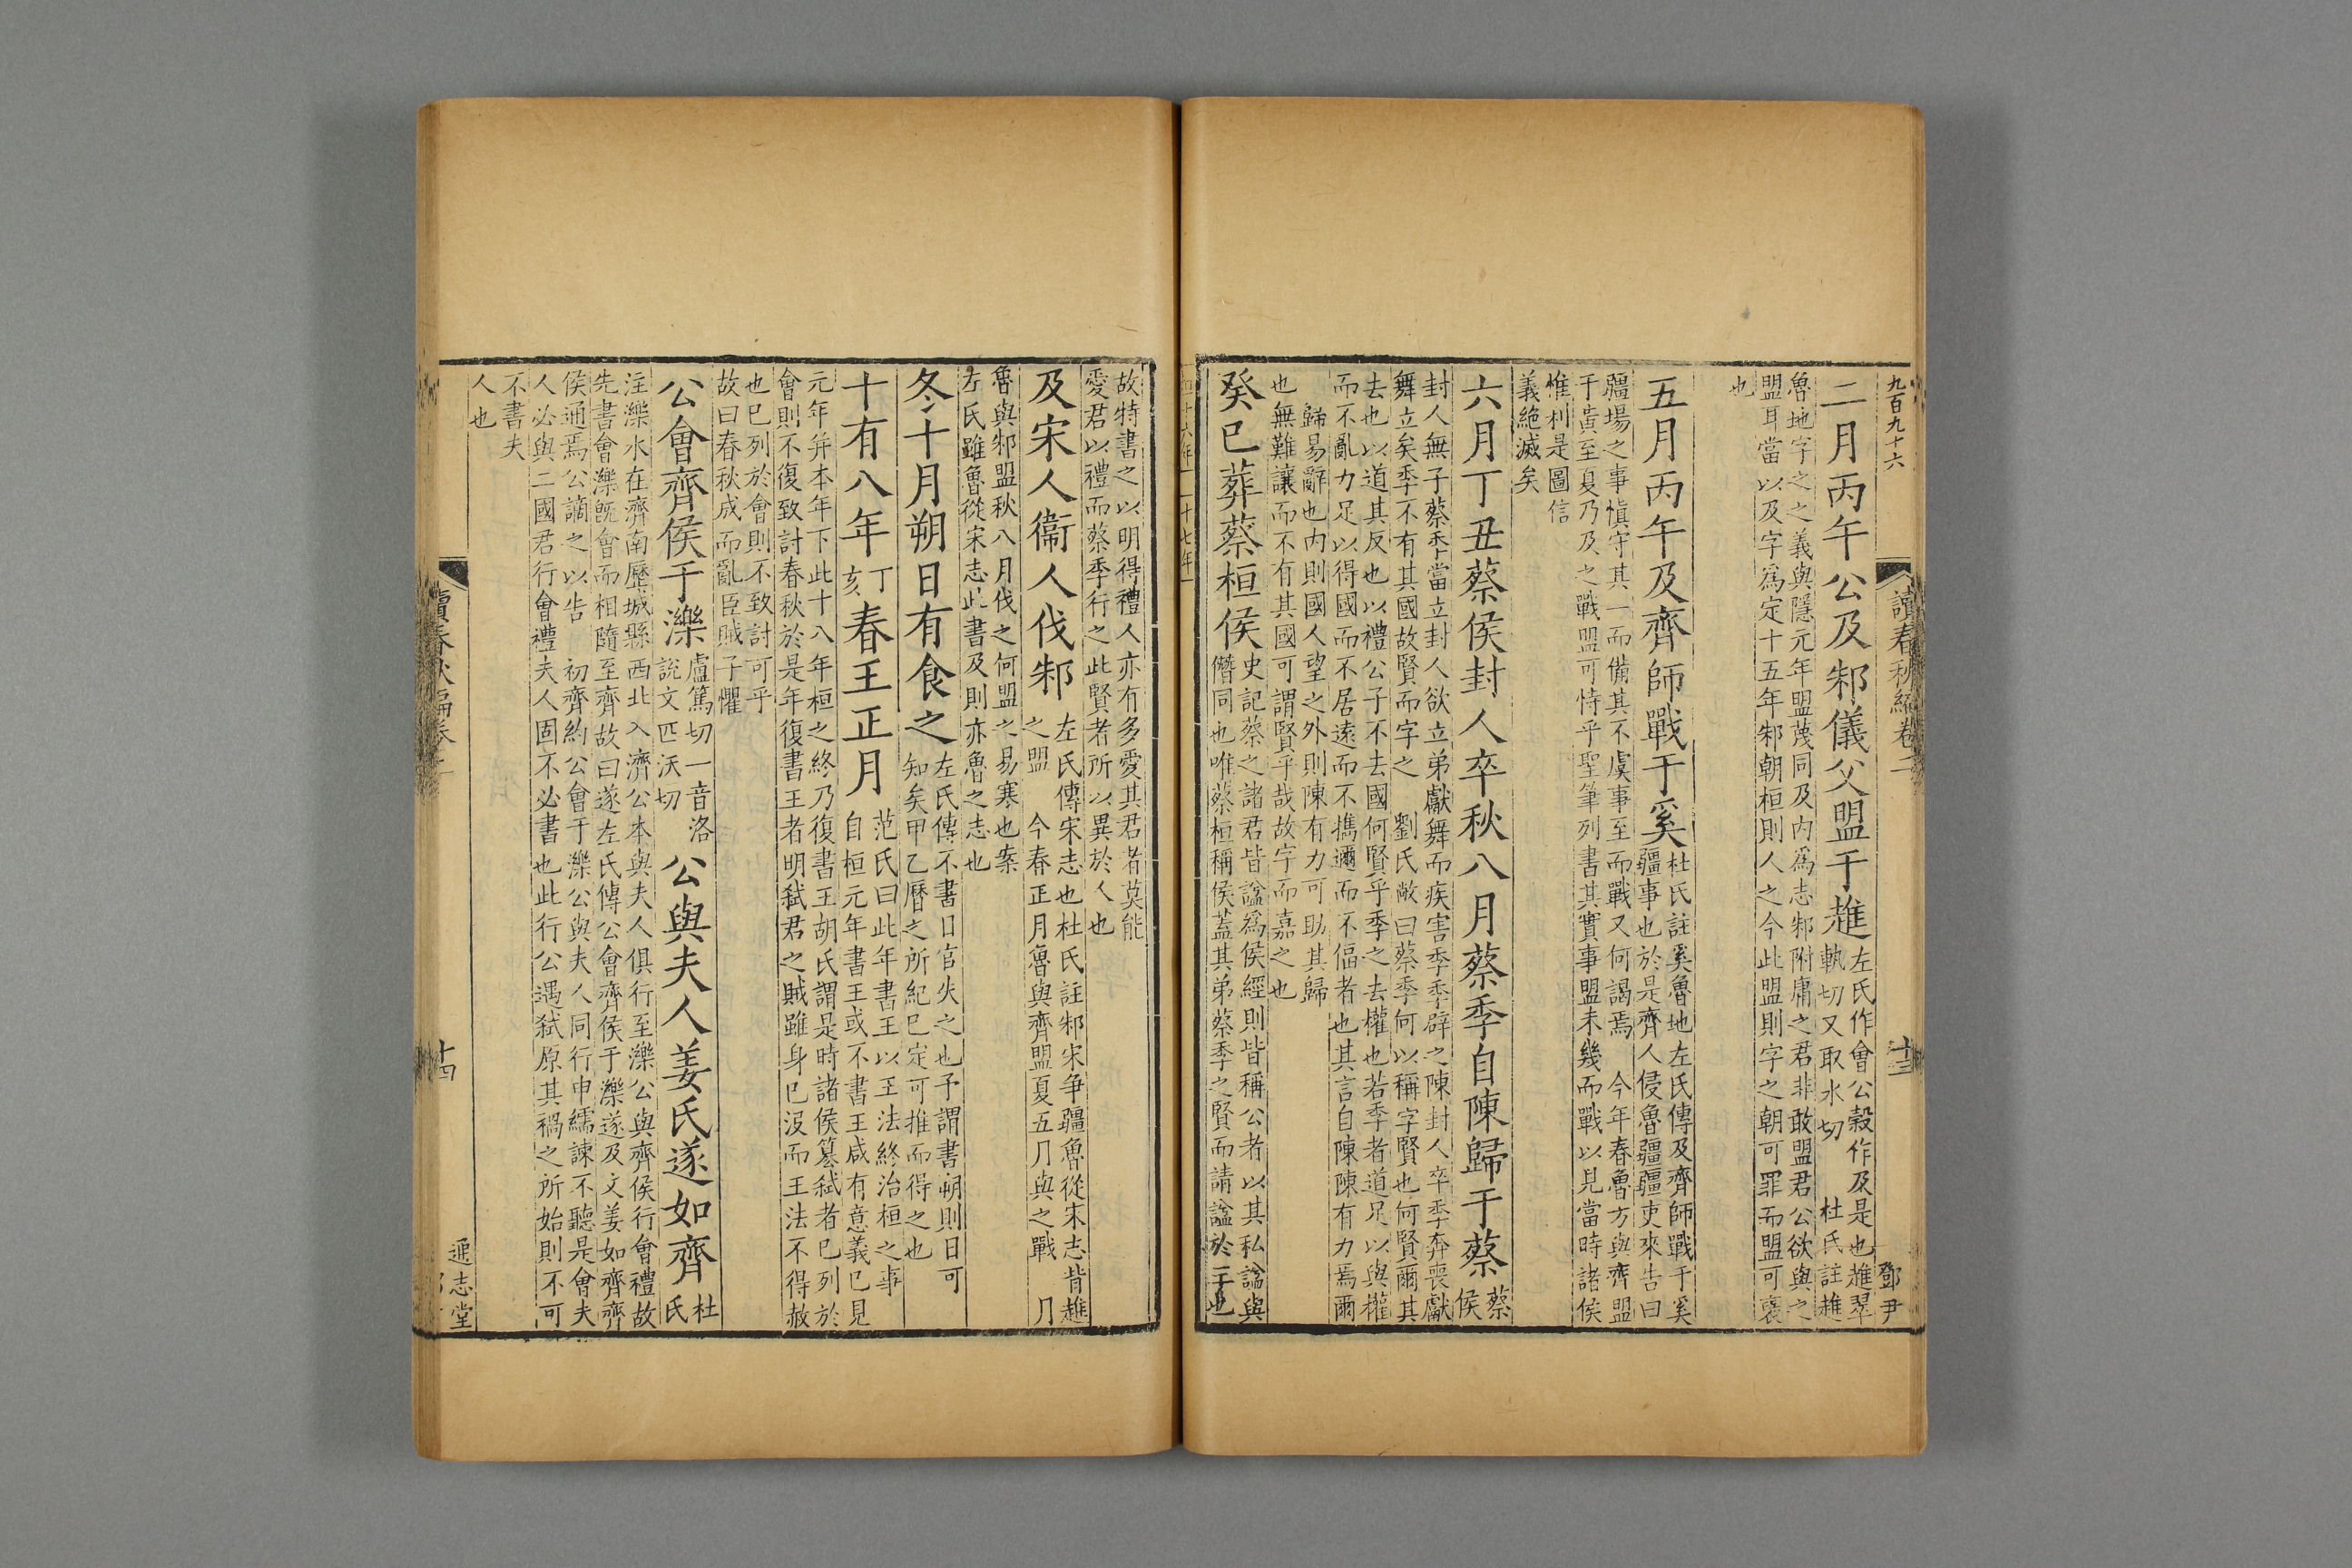 九百九十六
讀春秋編卷二
十三
鄧尹
二月丙午公及邾儀父盟于趡
左氏作會公穀作及是也趡翠
軌切又取水切　杜氏註趡
魯地字之之義與隱元年盟蔑同及内爲志邾附庸之君非敢盟君公欲與之
盟耳當以及字爲定十五年邾朝桓則人之今此盟則字之朝可罪而盟可褒
也
五月丙午及齊師戰于奚
杜氏註奚魯地左氏傳及齊師戰于奚
疆事也於是齊人侵魯疆疆吏來告曰
疆場之事愼守其一而備其不虞事至而戰又何謁焉　今年春魯方與齊盟
于黄至夏乃及之戰盟可恃乎聖筆列書其實事盟未幾而戰以見當時諸侯
惟利是圖信
義絶滅矣
六月丁丑蔡侯封人卒秋八月蔡季自陳歸于蔡
蔡
侯
封人無子蔡季當立封人欲立弟獻舞而疾害季季辟之陳封人卒季奔喪獻
舞立矣季不有其國故賢而字之　劉氏敞曰蔡季何以稱字賢也何賢爾其
去也以道其反也以禮公子不去國何賢乎季之去權也若季者道足以與權
而不亂力足以得國而不居遠而不攜邇而不偪者也其言自陳陳有力焉爾
歸易辭也内則國人望之外則陳有力可助其歸
也無難讓而不有其國可謂賢乎哉故字而嘉之也
癸巳葬蔡桓侯
史記蔡之諸君皆諡爲侯經則皆稱公者以其私諡與
僭同也唯蔡桓稱侯蓋其弟蔡季之賢而請諡於王也
故特書之以明得禮人亦有多愛其君者莫能
愛君以禮而蔡季行之此賢者所以異於人也
及宋人衞人伐邾
左氏傳宋志也杜氏註邾宋争疆魯從宋志背趡
之盟　今春正月魯與齊盟夏五月與之戰　月
魯與邾盟秋八月伐之何盟之易寒也案
左氏雖魯從宋志此書及則亦魯之志也
冬十月朔日有食之
左氏傳不書日官失之也予謂書朔則日可
知矣甲乙曆之所紀已定可推而得之也
十有八年
丁
亥
春王正月
范氏曰此年書王以王法終治桓之事
自桓元年書王或不書王咸有意義已見
元年并本年下此十八年桓之終乃復書王胡氏謂是時諸侯簒弑者已列於
會則不復致討春秋於是年復書王者明弑君之賊雖身已沒而王法不得赦
也已列於會則不致討可乎
故曰春秋成而亂臣賊子懼
公會齊侯于濼
盧篤切一音洛
說文匹沃切
公與夫人姜氏遂如齊
杜
氏
注濼水在濟南歷城縣西北入濟公本與夫人俱行至濼公與齊侯行會禮故
先書會濼旣會而相隨至齊故曰遂左氏傳公會齊侯于濼遂及文姜如齊齊
侯通焉公謫之以告　初齊約公會于濼公與夫人同行申繻諫不聽是會夫
人必與二國君行會禮夫人固不必書也此行公遇弑原其禍之所始則不可
不書夫
人也
讀春秋編卷二
十四
通志堂